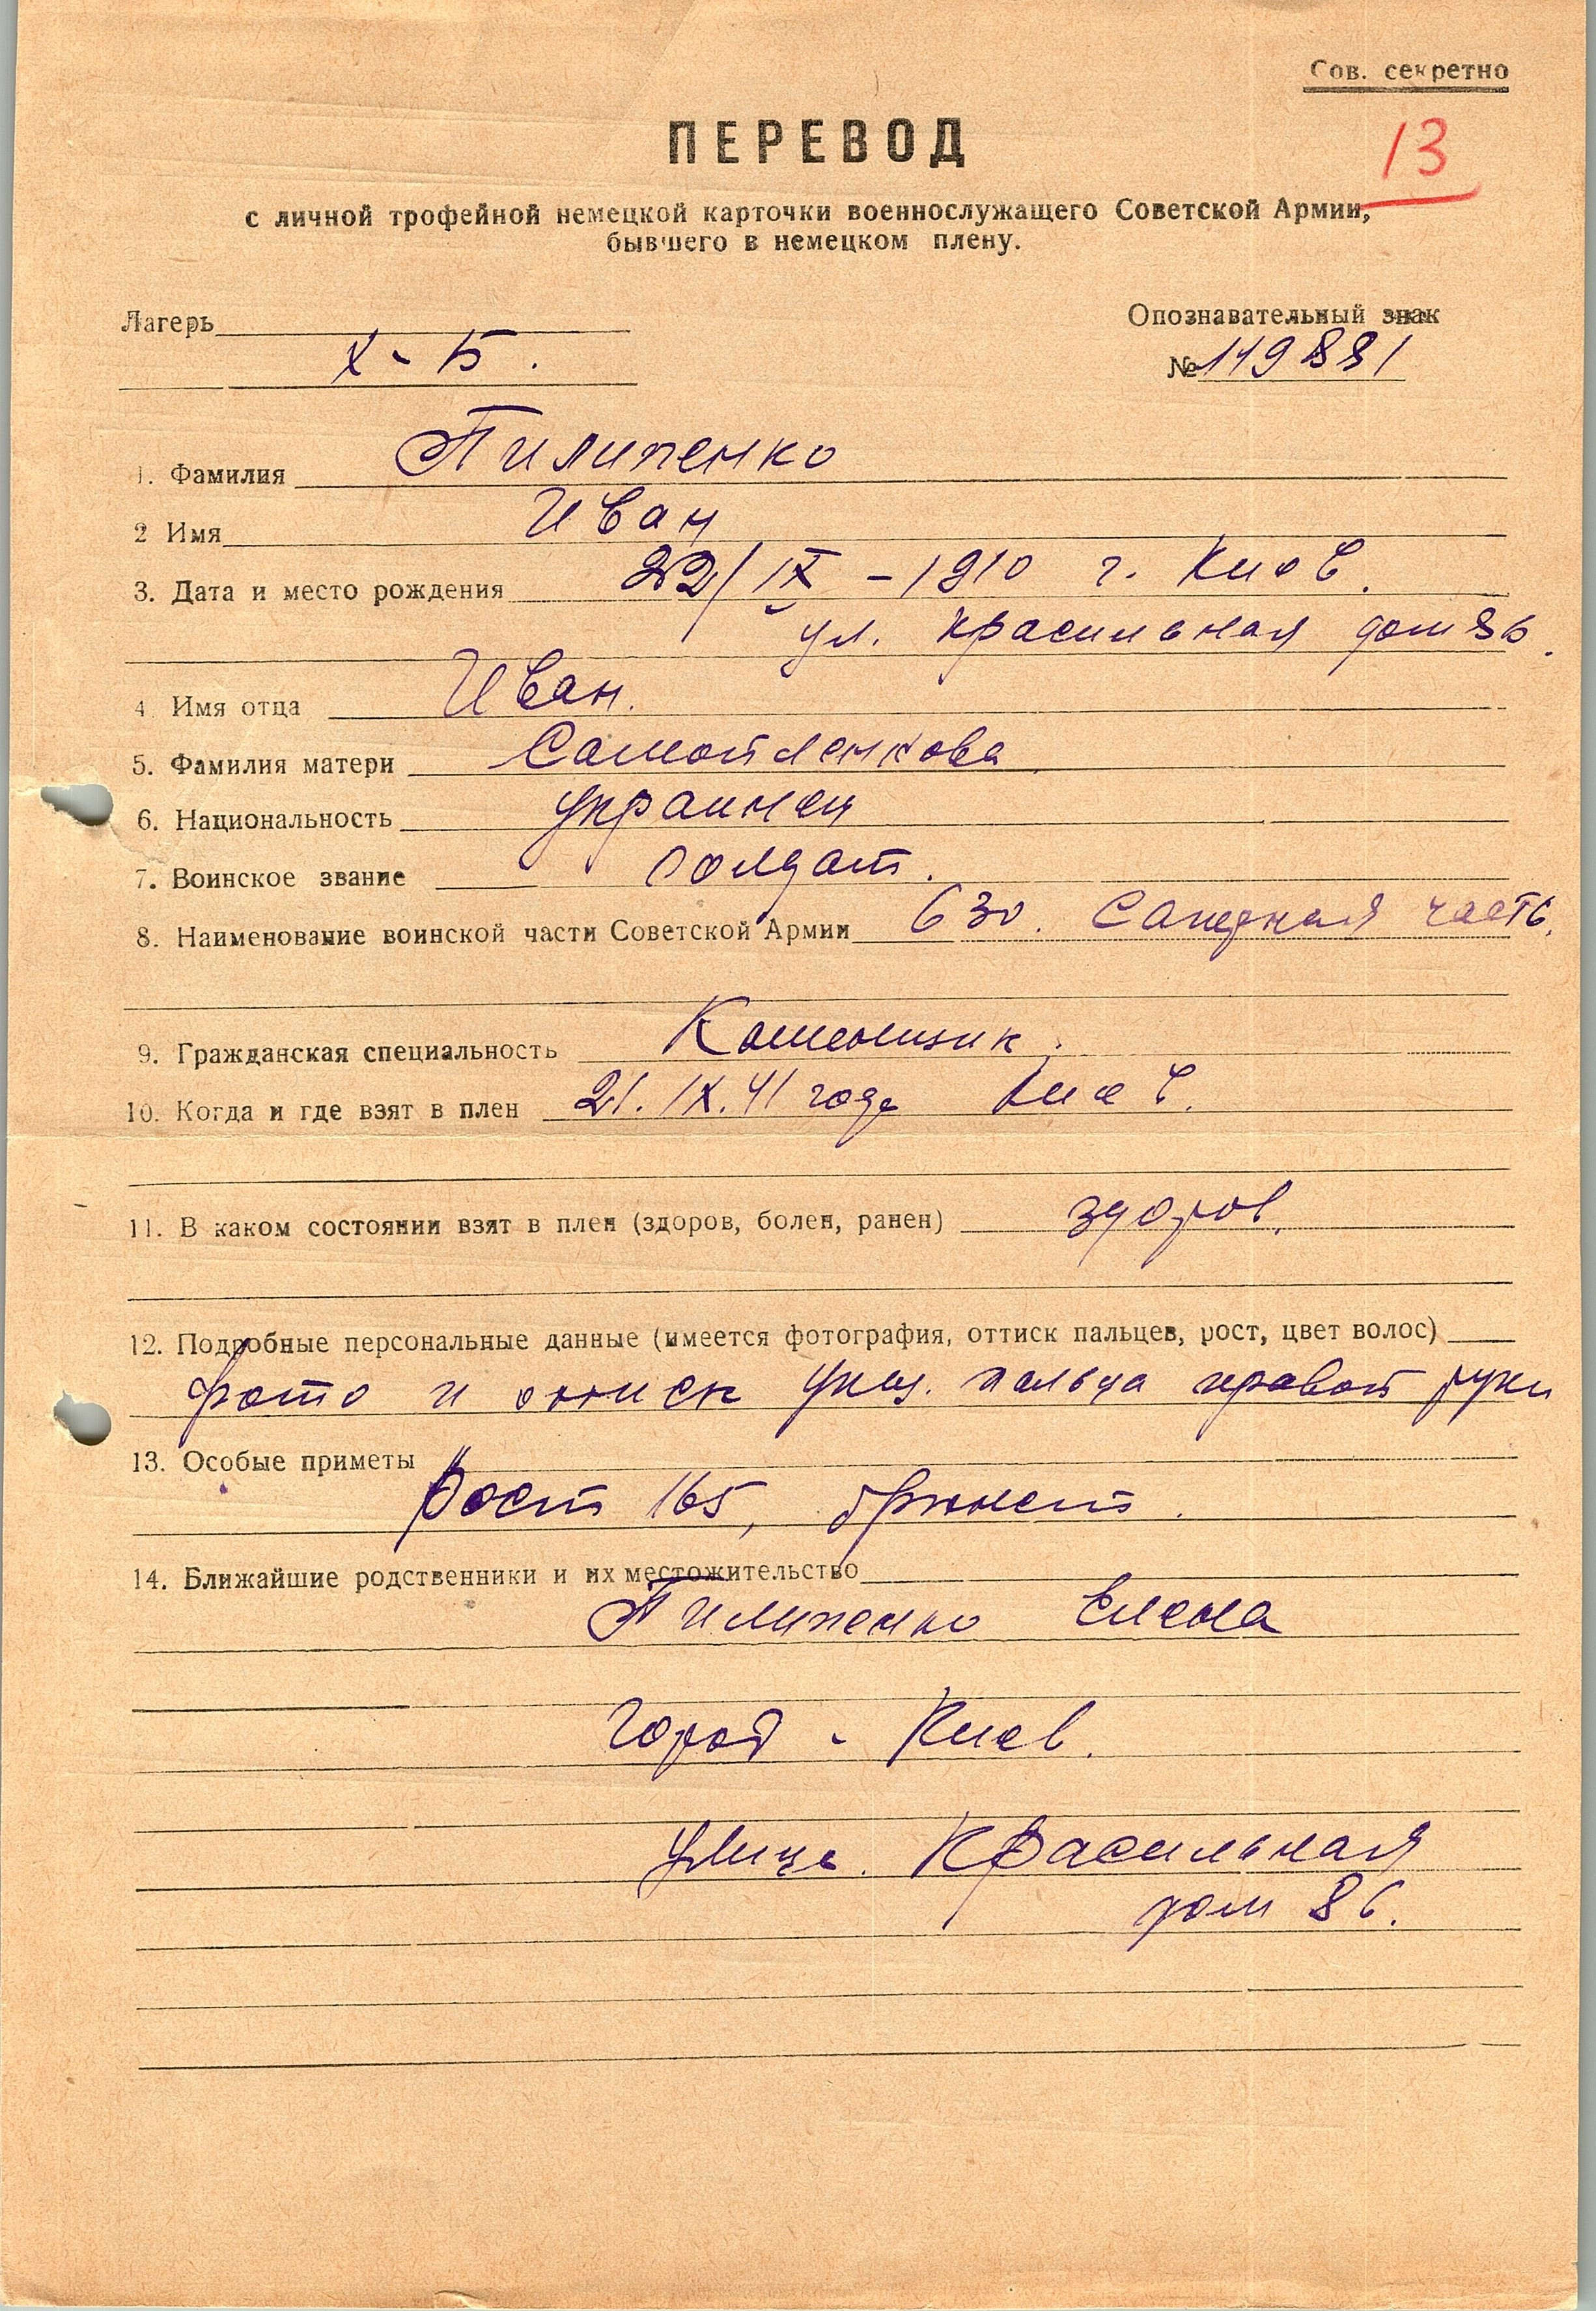 Сов. секретно
13
ПЕРЕВОД
с личной трофейной немецкой карточки военнослужащего Советской Армии,
бывшего в немецком плену.
Лагерь
Х-Б.
Опознавательный знак
№ 119881
1. Фамилия Пилипенко
2 Имя Иван
3. Дата и место рождения 22/IX - 1910 г. Киев.
ул. Красильная дом 86.
4. Имя отца Иван.
5. Фамилия матери
6. Национальность украинец
7. Воинское звание солдат.
8. Наименование воинской части Советской Армии 630. Саперная часть.
9. Гражданская специальность Каменщик.
10. Когда и где взят в плен 21.IX.41 года Киев.
11. В каком состоянии взят в плен (здоров, болен, ранен) здоров.
12. Подробные персональные данные (имеется фотография, оттиск пальцев, рост, цвет волос)
фото и оттиск указ. пальца правой руки
13. Особые приметы
Рост 165, брюнет.
14. Ближайшие родственники и их местожительство
Пилипенко Елена
город - Киев.
улица. Красильная
дом 86.